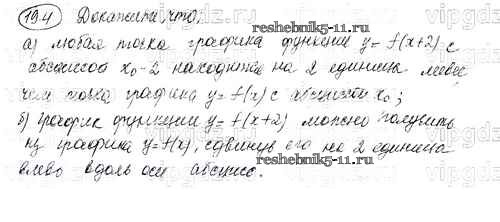 19.4 Докажите, что:
а) любая точка графика функции y = f(x+2) с
абсциссой x₀-2 находится на 2 единицы левее
чем точка графика y = f(x) с абсциссой x₀;
б) график функции y = f(x+2) можно получить
из графика y = f(x), сдвинув его на 2 единицы
влево вдоль оси абсцисс.
www.vipgdz.com
www.vipgdz.com